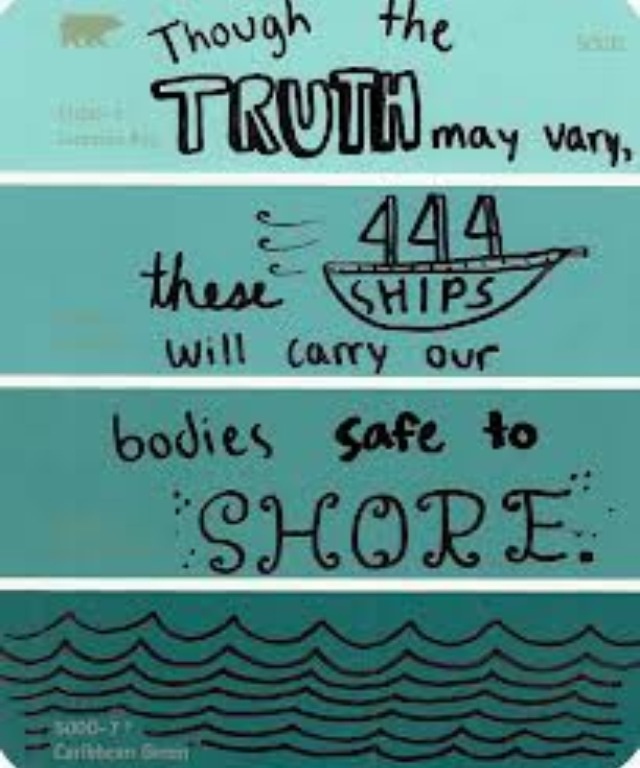 Though the
TRUTH may vary,
these SHIPS
will carry our
bodies safe to
SHORE.
5000-7
Caribbean Green